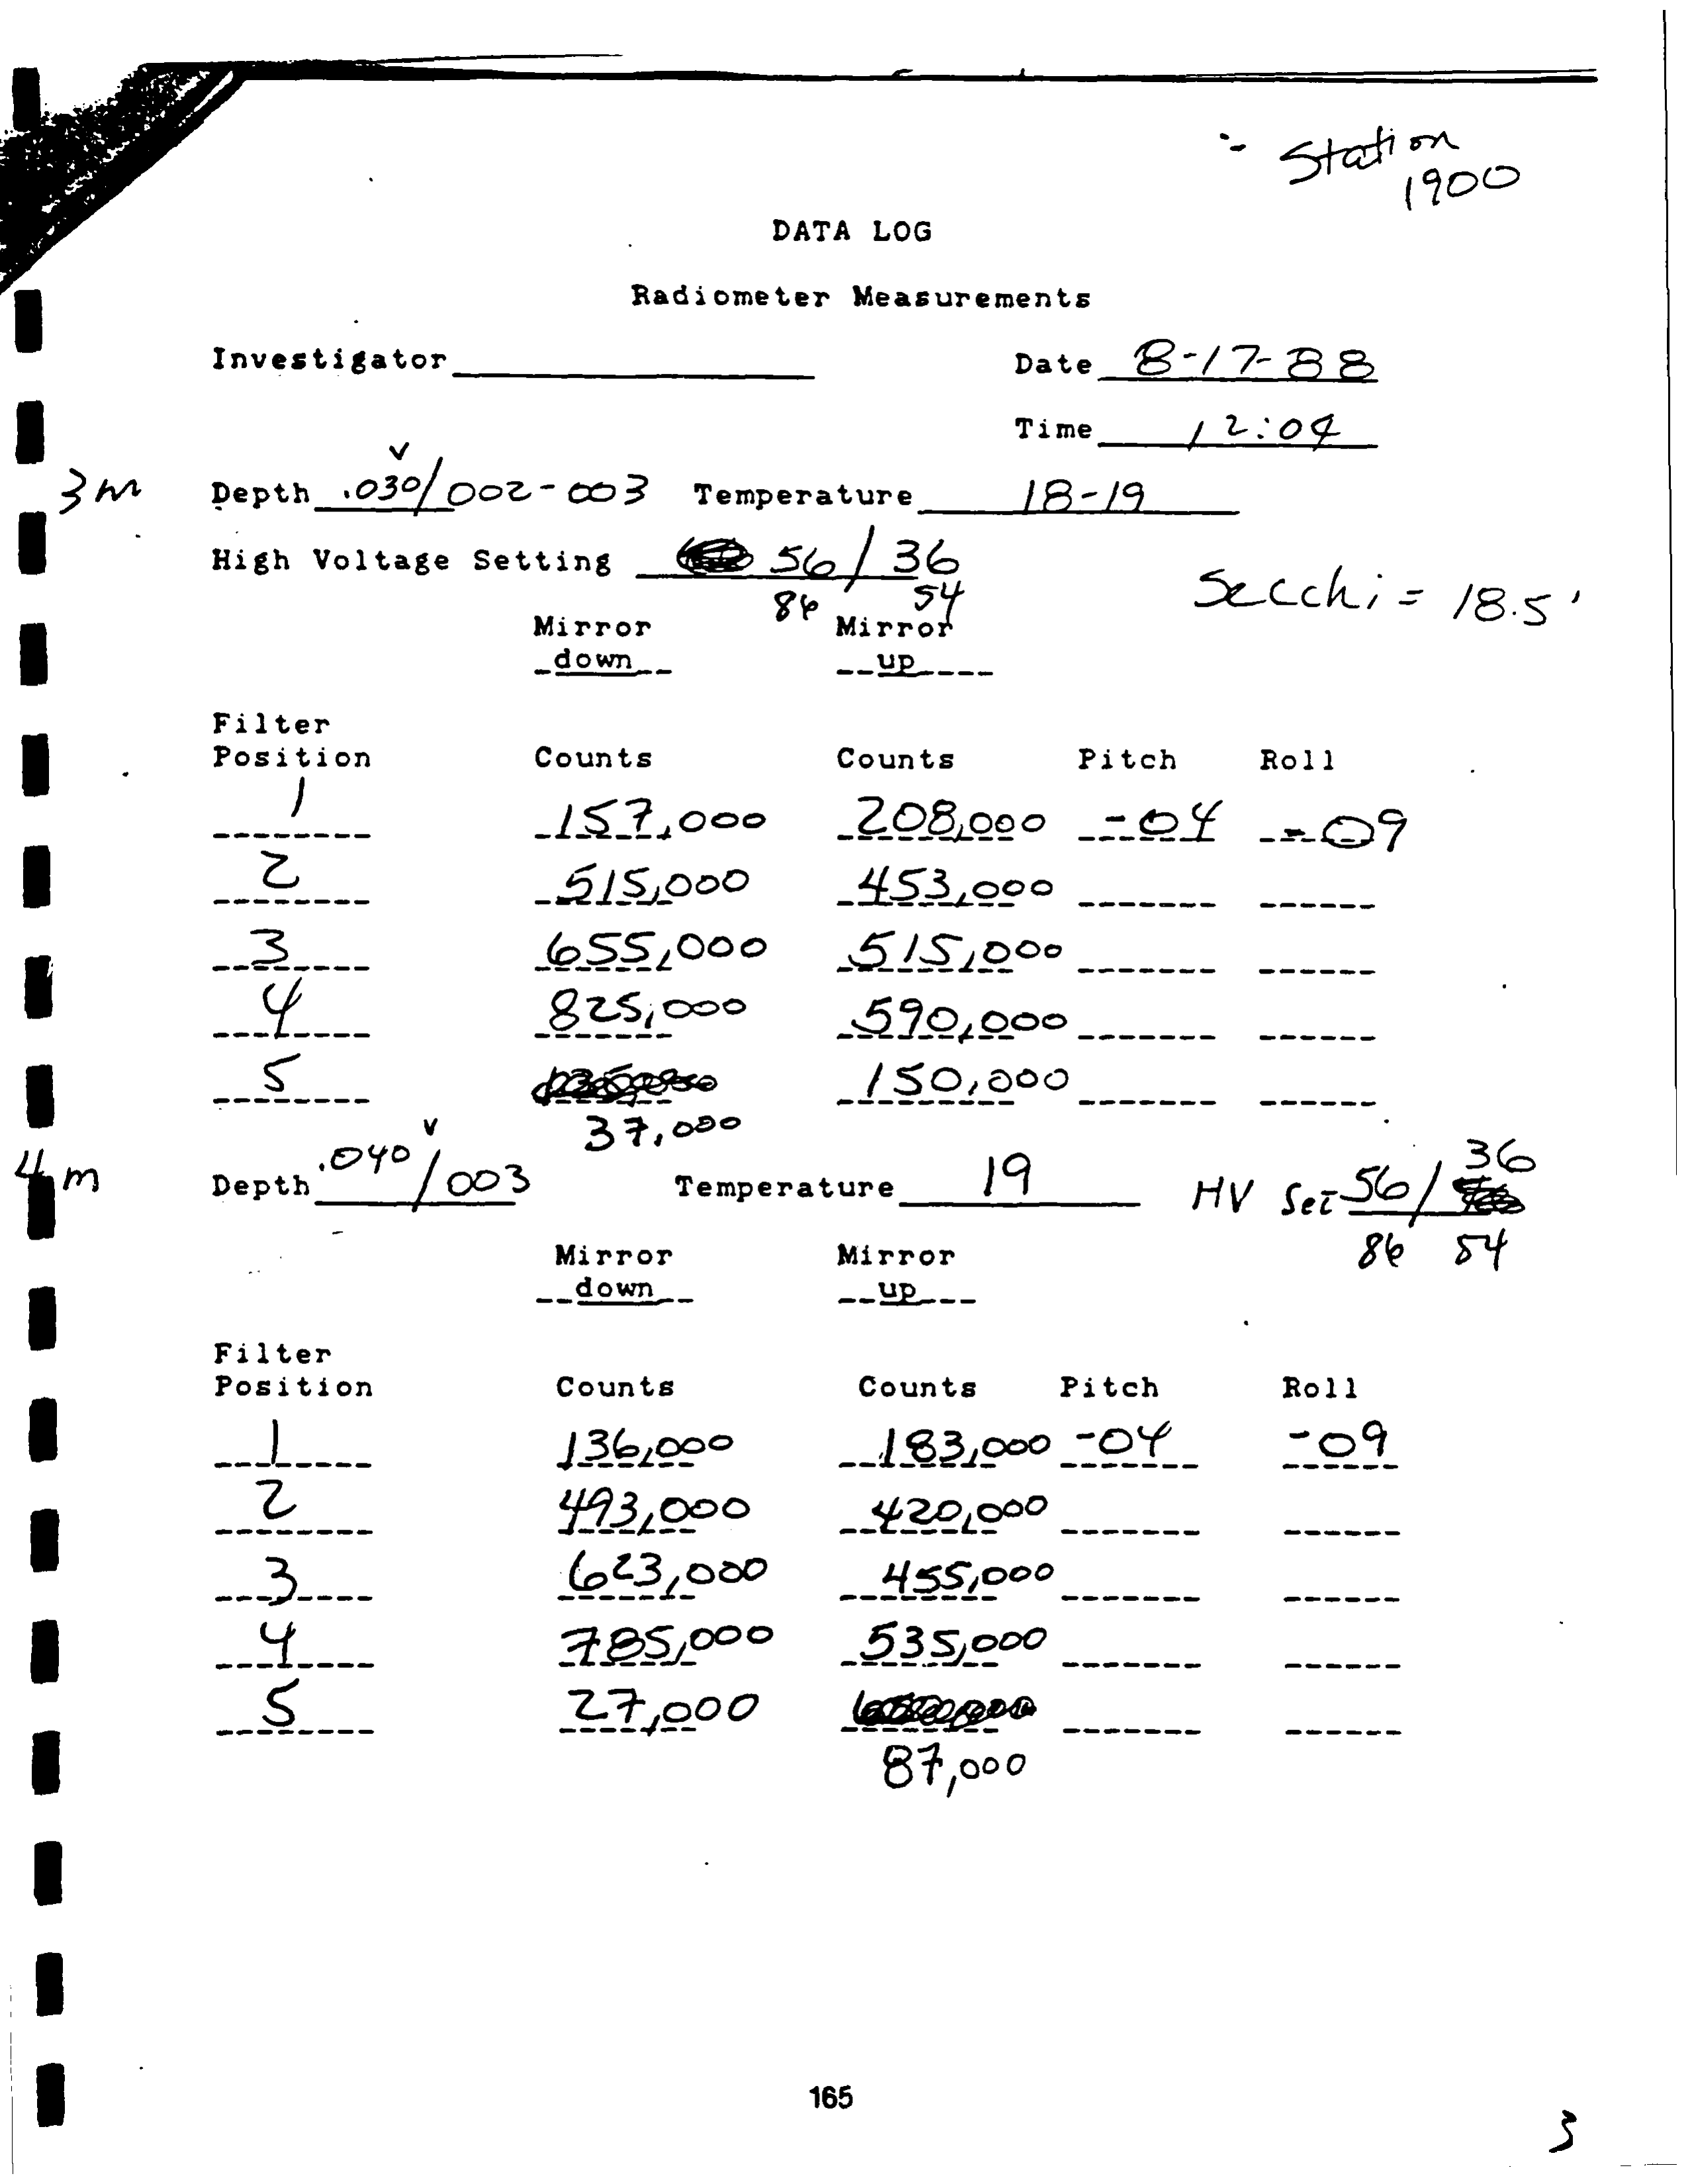 Station
1900
DATA LOG
Radiometer Measurements
Investigator Date 8-17-88
Time 12:04
3m Depth .030v/002-003 Temperature 18-19
High Voltage Setting 56/36
86 54
Secchi = 18.5'
Mirror Mirror
down up
Filter
Position Counts Counts Pitch Roll
1 157,000 208,000 -04 -09
2 515,000 453,000
3 655,000 515,000
4 825,000 590,000
5 150,000
37,000
4m Depth .040v/003 Temperature 19 HV Set 56/36
86 54
Mirror Mirror
down up
Filter
Position Counts Counts Pitch Roll
1 136,000 183,000 -04 -09
2 493,000 420,000
3 623,000 455,000
4 785,000 535,000
5 27,000
87,000
165
3